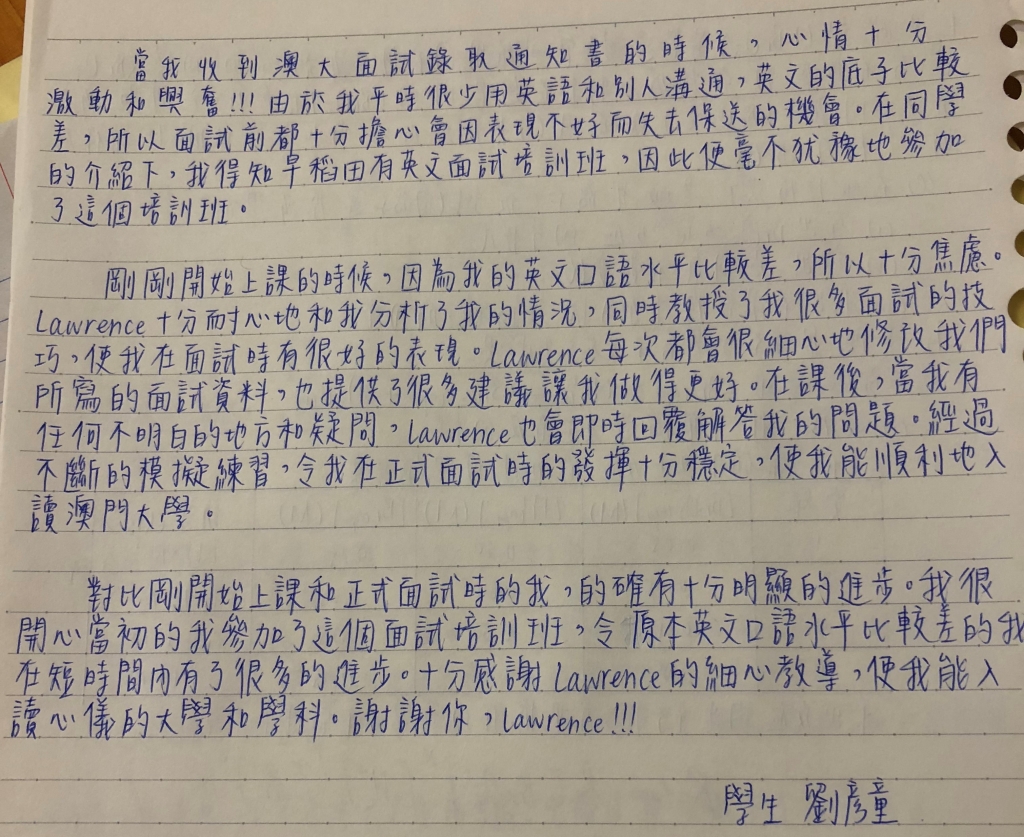 當我收到澳大面試錄取通知書的時候，心情十分
激動和興奮!!!由於我平時很少用英語和別人溝通，英文的底子比較
差，所以面試前都十分擔心會因表現不好而失去保送的機會。在同學
的介紹下，我得知早稻田有英文面試培訓班，因此便毫不犹豫地參加
了這個培訓班。
剛剛開始上課的時候，因為我的英文口語水平比較差，所以十分焦慮。
Lawrence十分耐心地和我分析了我的情況，同時教授了我很多面試的技
巧，使我在面試時有很好的表現。Lawrence每次都會很細心地修改我們
所寫的面試資料，也提供了很多建議讓我做得更好。在課後，當我有
任何不明白的地方和疑問，Lawrence也會即時回覆解答我的問題。經過
不斷的模擬練習，令我在正式面試時的發揮十分穩定，使我能順利地入
讀澳門大學。
對比剛開始上課和正式面試時的我，的確有十分明顯的進步。我很
開心當初的我參加了這個面試培訓班，令原本英文口語水平比較差的我
在短時間內有了很多的進步。十分感謝Lawrence的細心教導，使我能入
讀心儀的大學和學科。謝謝你，Lawrence!!!
學生 劉彥童